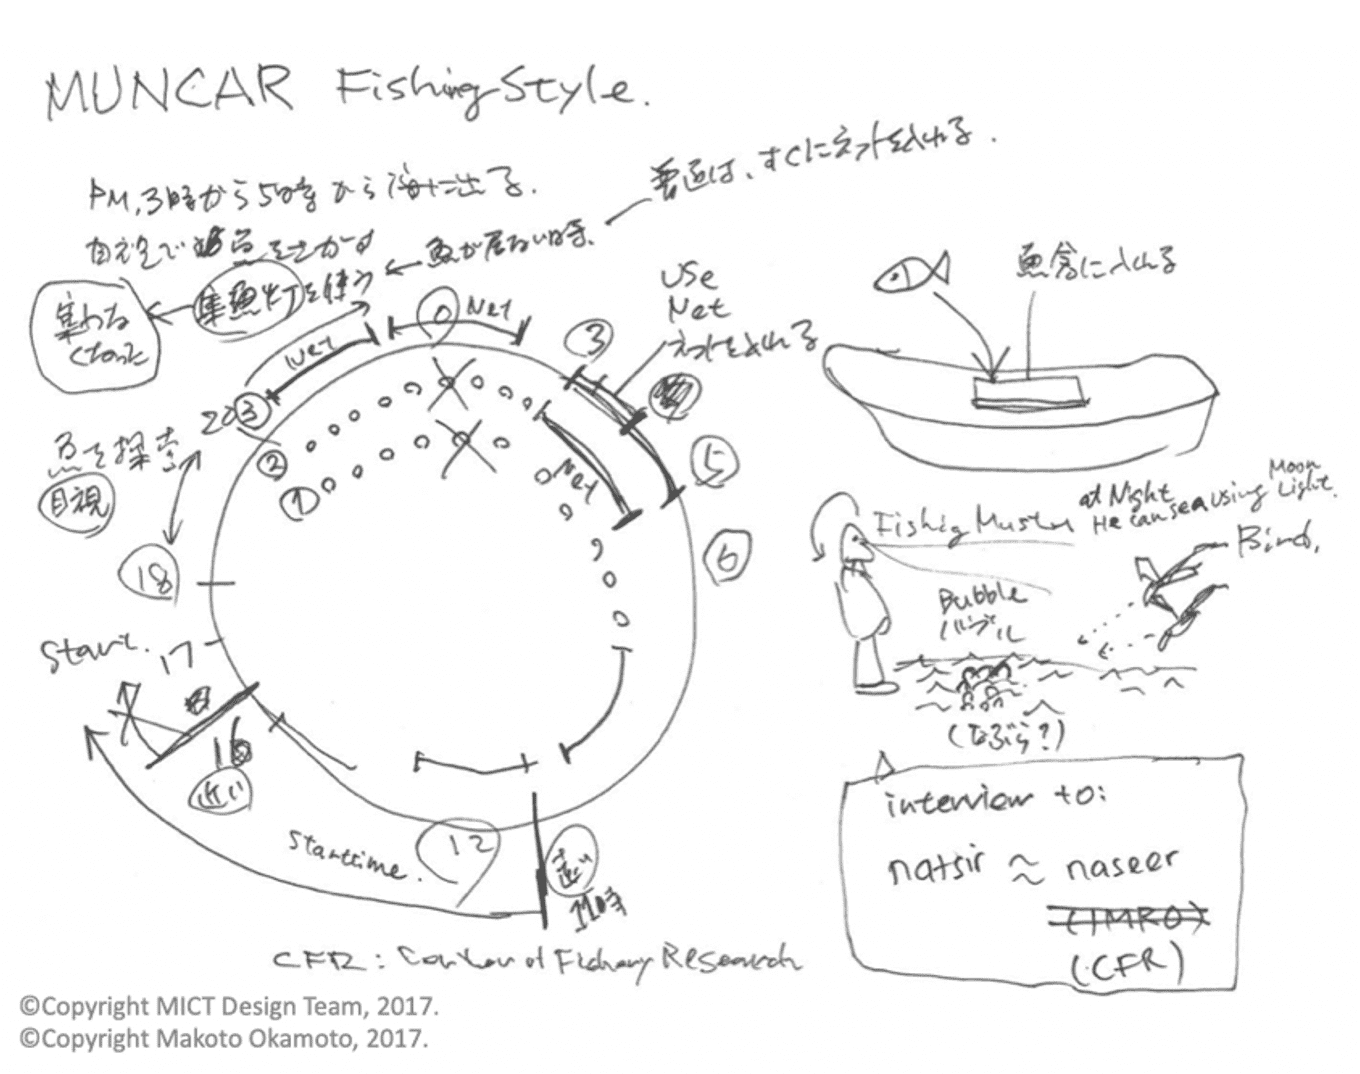 MUNCAR Fishing Style.
PM,3時から5時から海に出る.
普通は、すぐにネットを入れる.
目視で魚をさがす
魚が居ない時、
集魚灯を使う
集わる
Use
Net
ネットを入れる
0
Net
Net
3
5
6
203
2
1
魚を探索
目視
18
Start.
17
16
近い
Start time.
12
遠い
11時
魚倉に入れる
Fishig Muster
at Night
He can sea using Moon Light.
Bird,
Bubble
バブル
(なぶら?)
interview to:
natsir ≈ naseer
(IMRO)
(CFR)
CFR: Center of Fishery Research
©Copyright MICT Design Team, 2017.
©Copyright Makoto Okamoto, 2017.